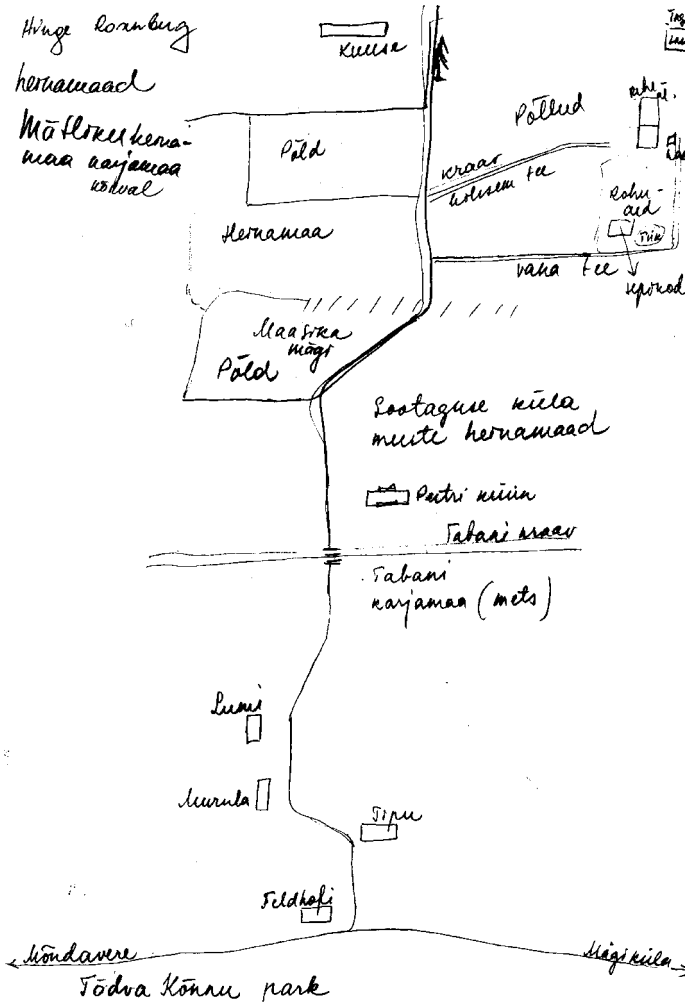 Hinge Rosenberg
Kuuse
hernamaad
Mätliku herna-
maa karjamaa
kõrval
Põld
Põllud
kraav
hilisem tee
Rohu-
aed
Tiik
Hernamaa
vana tee
Maasika
mägi
Põld
Sootaguse küla
meeste hernamaad
Peetri küün
Tabani kraav
Tabani
karjamaa (mets)
Lumi
Murula
Tipu
Feldhofi
Mõndavere
Mägiküla
Tõdva Kõnnu park